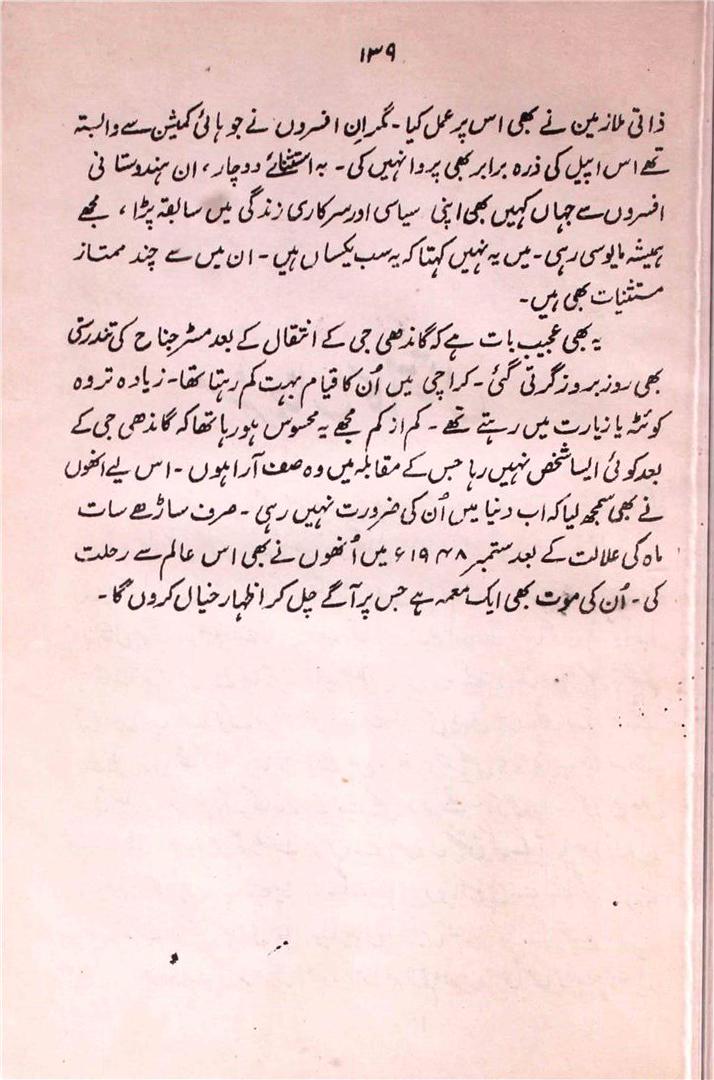 ۱۳۹
ذاتی ملازمین نے بھی اس پر عمل کیا۔ مگر ان افسروں نے جو ہائی کمیشن سے وابستہ
تھے اس اپیل کی ذرہ برابر بھی پروا نہیں کی۔ بہ استثنائے دو چار، ان ہندوستانی
افسروں سے جہاں کہیں بھی اپنی سیاسی اور سرکاری زندگی میں سابقہ پڑا، مجھے
ہمیشہ مایوسی رہی۔ میں یہ نہیں کہتا کہ یہ سب یکساں ہیں۔ ان میں سے چند ممتاز
مستثنیات بھی ہیں۔
یہ بھی عجیب بات ہے کہ گاندھی جی کے انتقال کے بعد مسٹر جناح کی تندرستی
بھی روز بروز گرتی گئی۔ کراچی میں اُن کا قیام بہت کم رہتا تھا۔ زیادہ تر وہ
کوئٹہ یا زیارت میں رہتے تھے۔ کم از کم مجھے یہ محسوس ہو رہا تھا کہ گاندھی جی کے
بعد کوئی ایسا شخص نہیں رہا جس کے مقابلہ میں وہ صف آرا ہوں۔ اس لیے انھوں
نے بھی سمجھ لیا کہ اب دنیا میں اُن کی ضرورت نہیں رہی۔ صرف ساڑھے سات
ماہ کی علالت کے بعد ستمبر ۱۹۴۸ء میں اُنھوں نے بھی اس عالم سے رحلت
کی۔ اُن کی موت بھی ایک معمہ ہے جس پر آگے چل کر اظہار خیال کروں گا۔